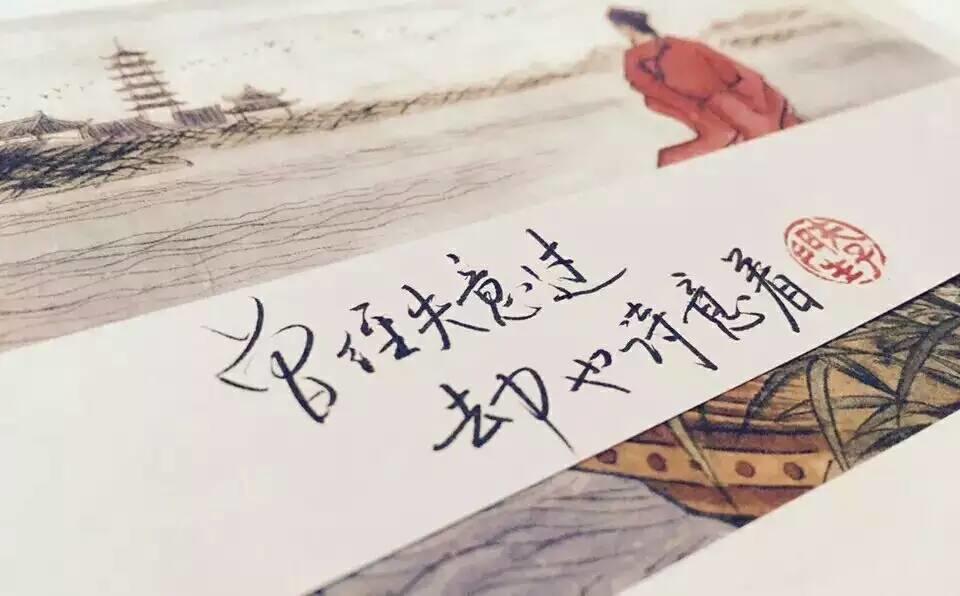 曾经失意过
却也诗意着